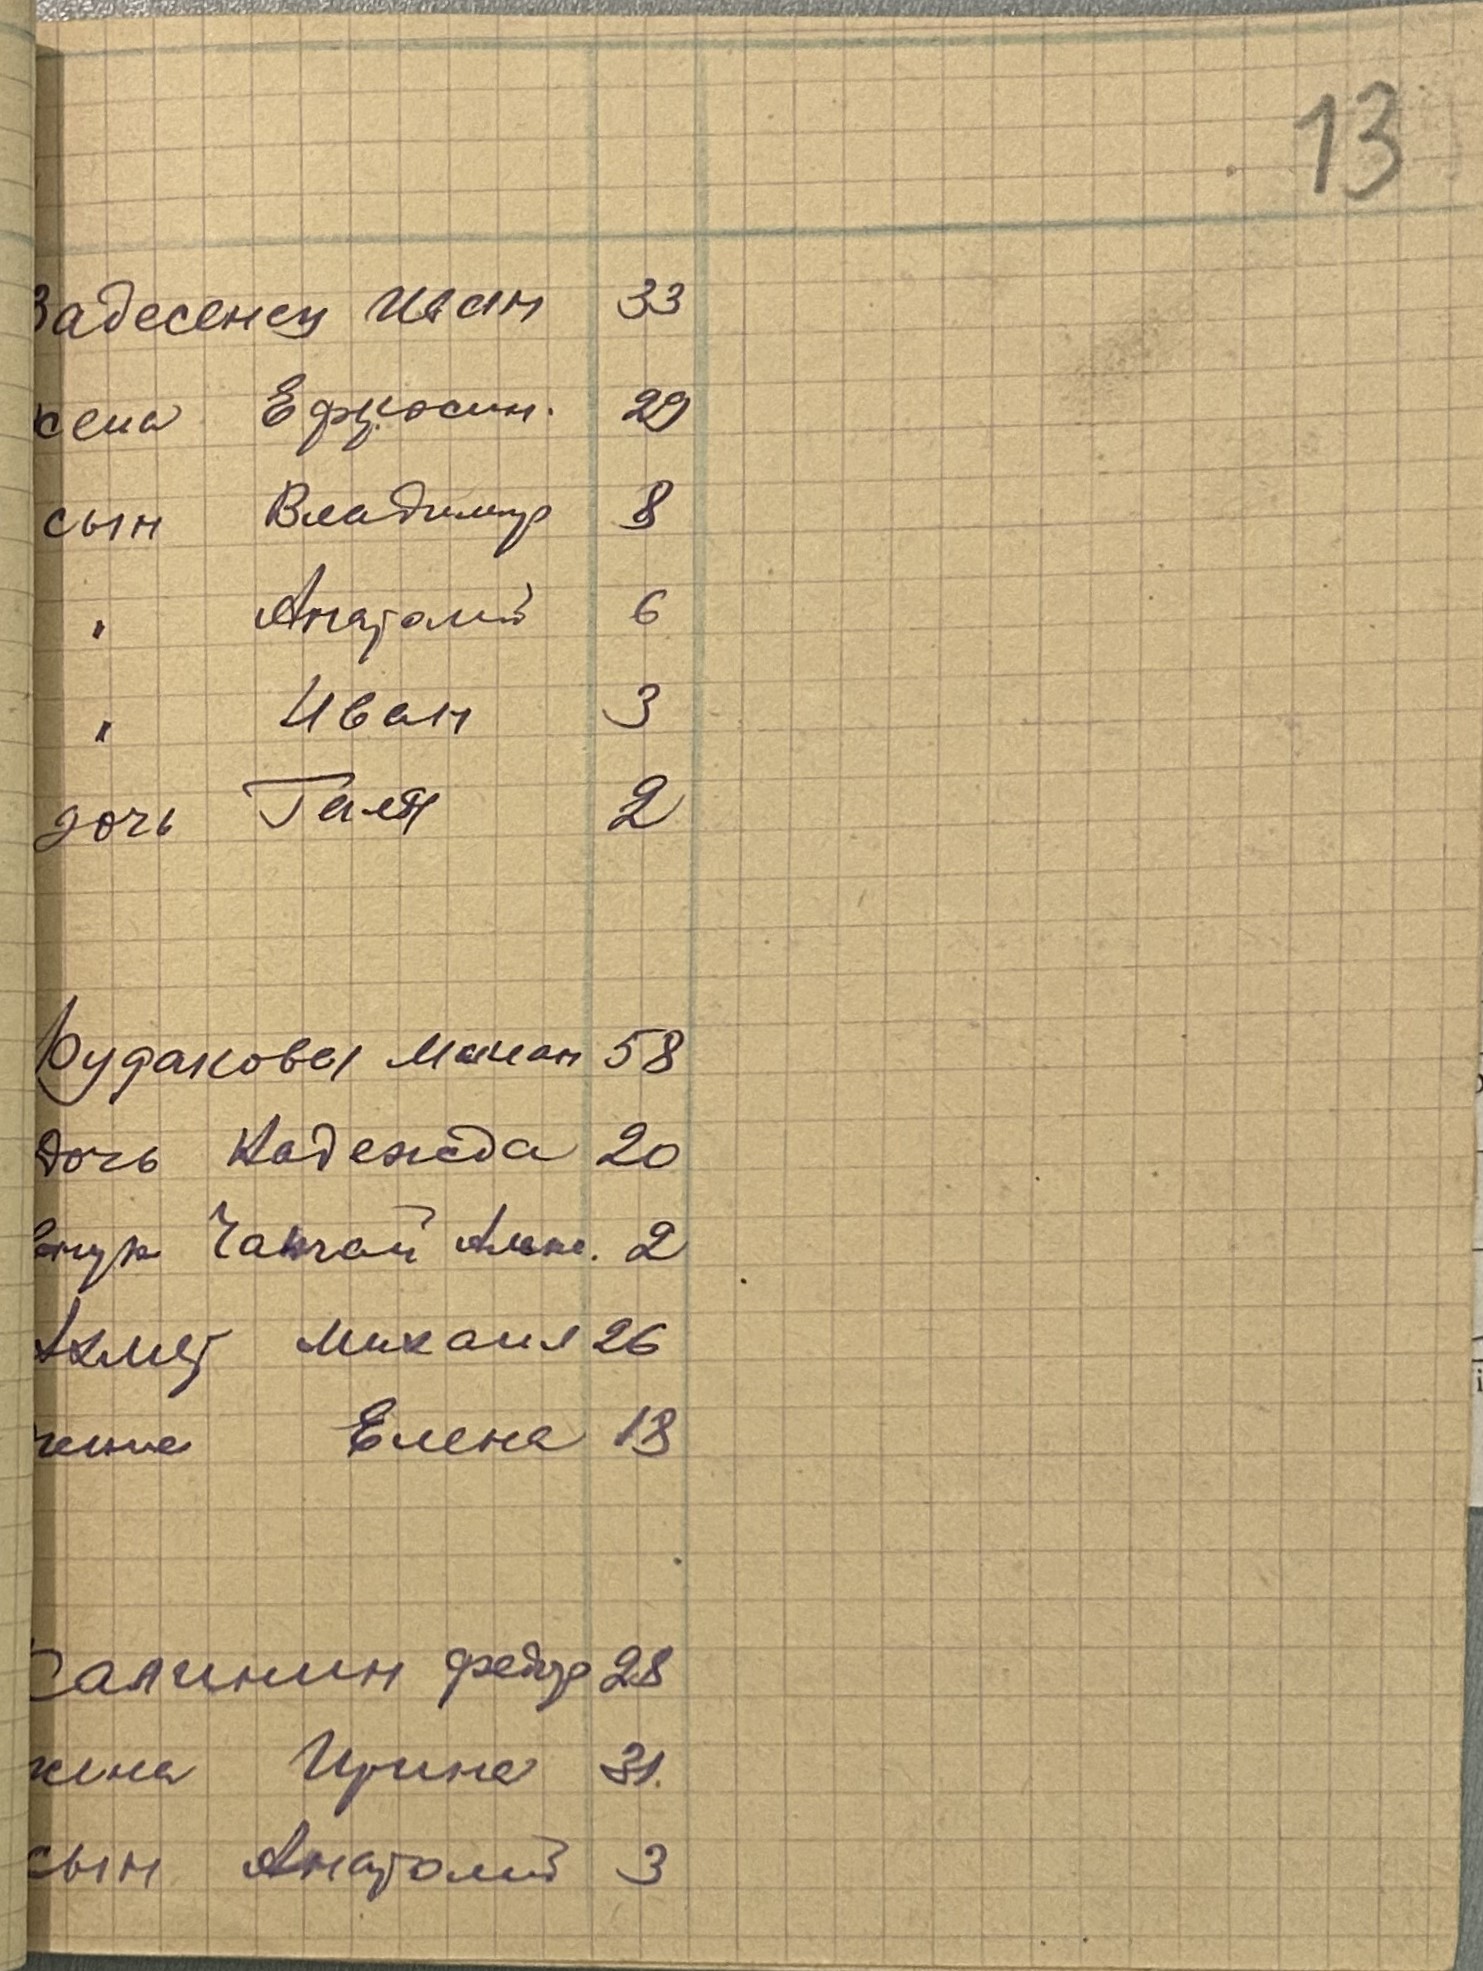 13
Задесенец Иван 33
жена Ефросин. 29
сын Владимир 8
" Анатолий 6
" Иван 3
дочь Галя 2
58
дочь Надежда 20
внук 2
Ахмет Михаил 26
жена Елена 18
Калинин Федор 28
жена Ирина 31.
сын Анатолий 3